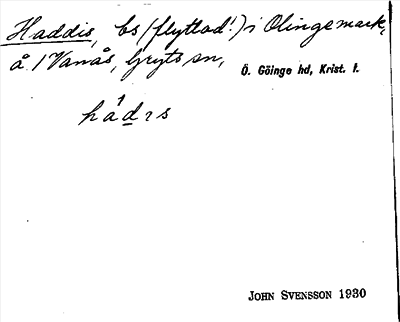 Haddis, bs (flyttad!) i Olingemark,
å 1 Vanås, Gryts sn, Ö. Göinge hd, Krist. l.
hádıs
JOHN SVENSSON 1930